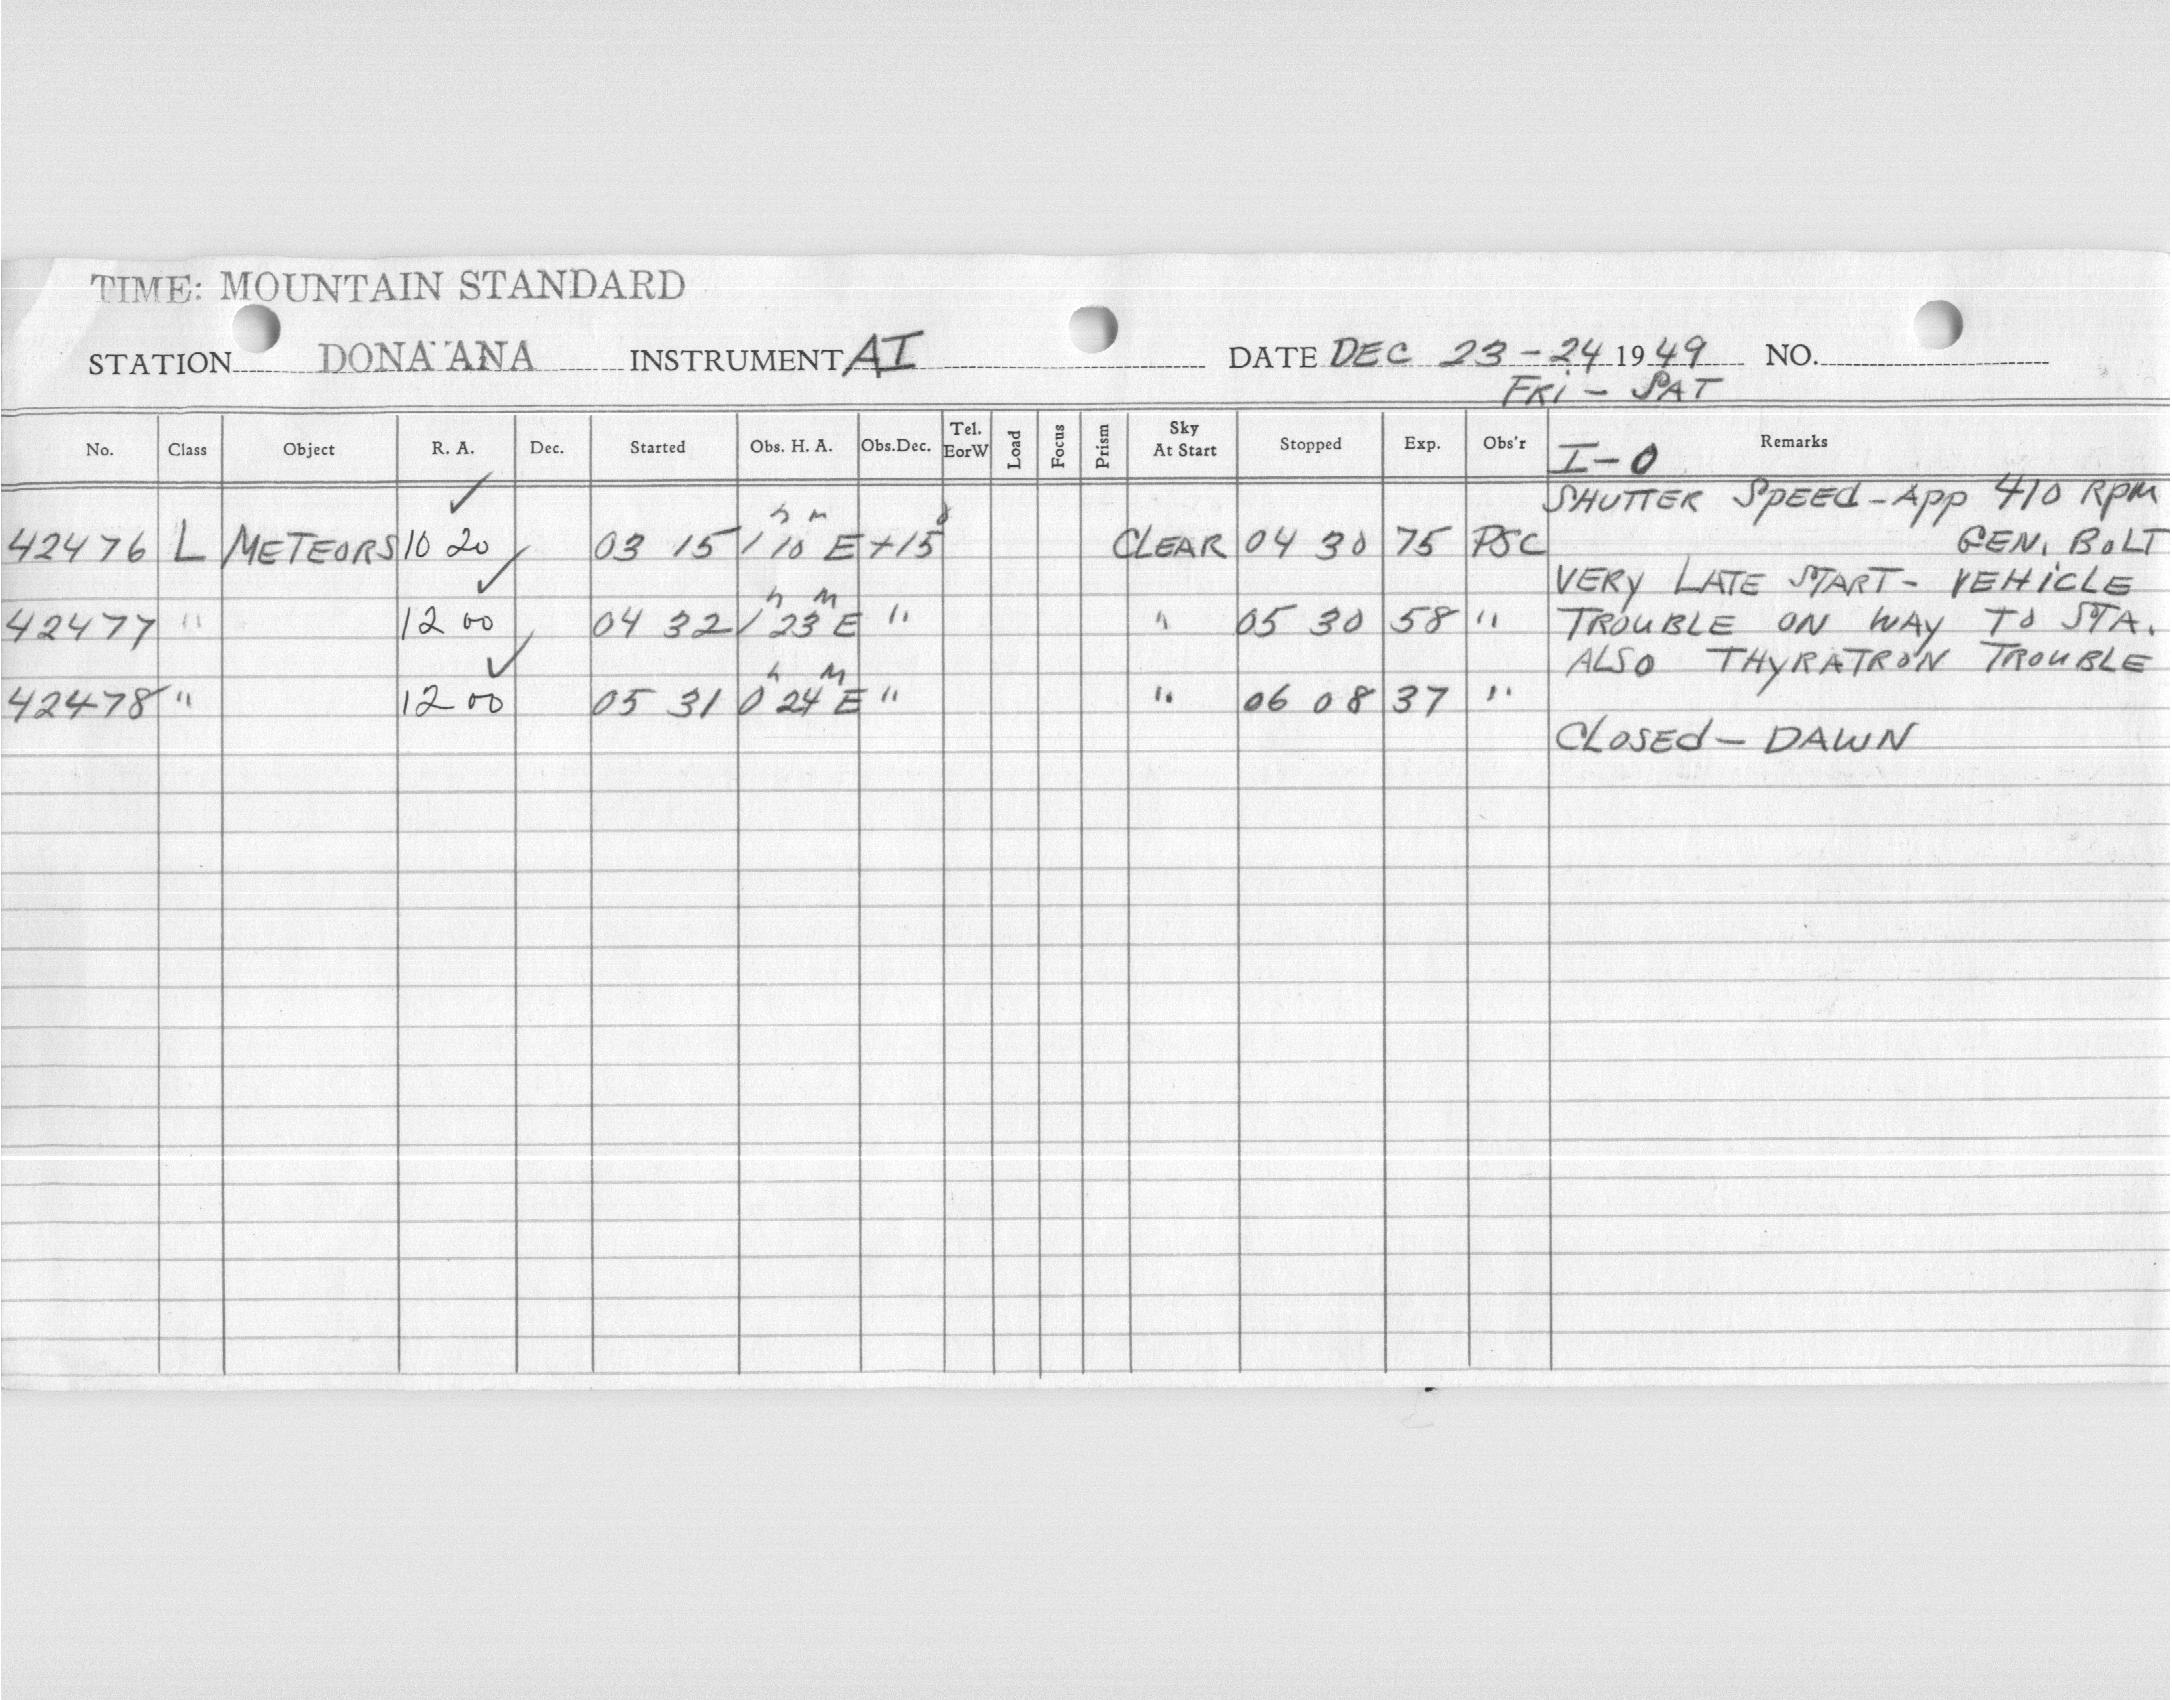 TIME: MOUNTAIN STANDARD
STATION DONA ANA INSTRUMENT AI DATE DEC 23-24 1949 NO.
FRI - SAT
No. Class Object R. A. Dec. Started Obs. H. A. Obs.Dec. Tel. EorW Load Focus Prism Sky At Start Stopped Exp. Obs'r Remarks
I-0
SHUTTER SPEED - APP 410 RPM
42476 L METEORS 10 20 ✓ 03 15 1h 10m E +15° CLEAR 04 30 75 PSC GEN. BOLT
VERY LATE START - VEHICLE
42477 " 12 00 ✓ 04 32 1h 23m E " " 05 30 58 " TROUBLE ON WAY TO STA.
ALSO THYRATRON TROUBLE
42478 " 12 00 ✓ 05 31 0h 24m E " " 06 08 37 "
CLOSED - DAWN